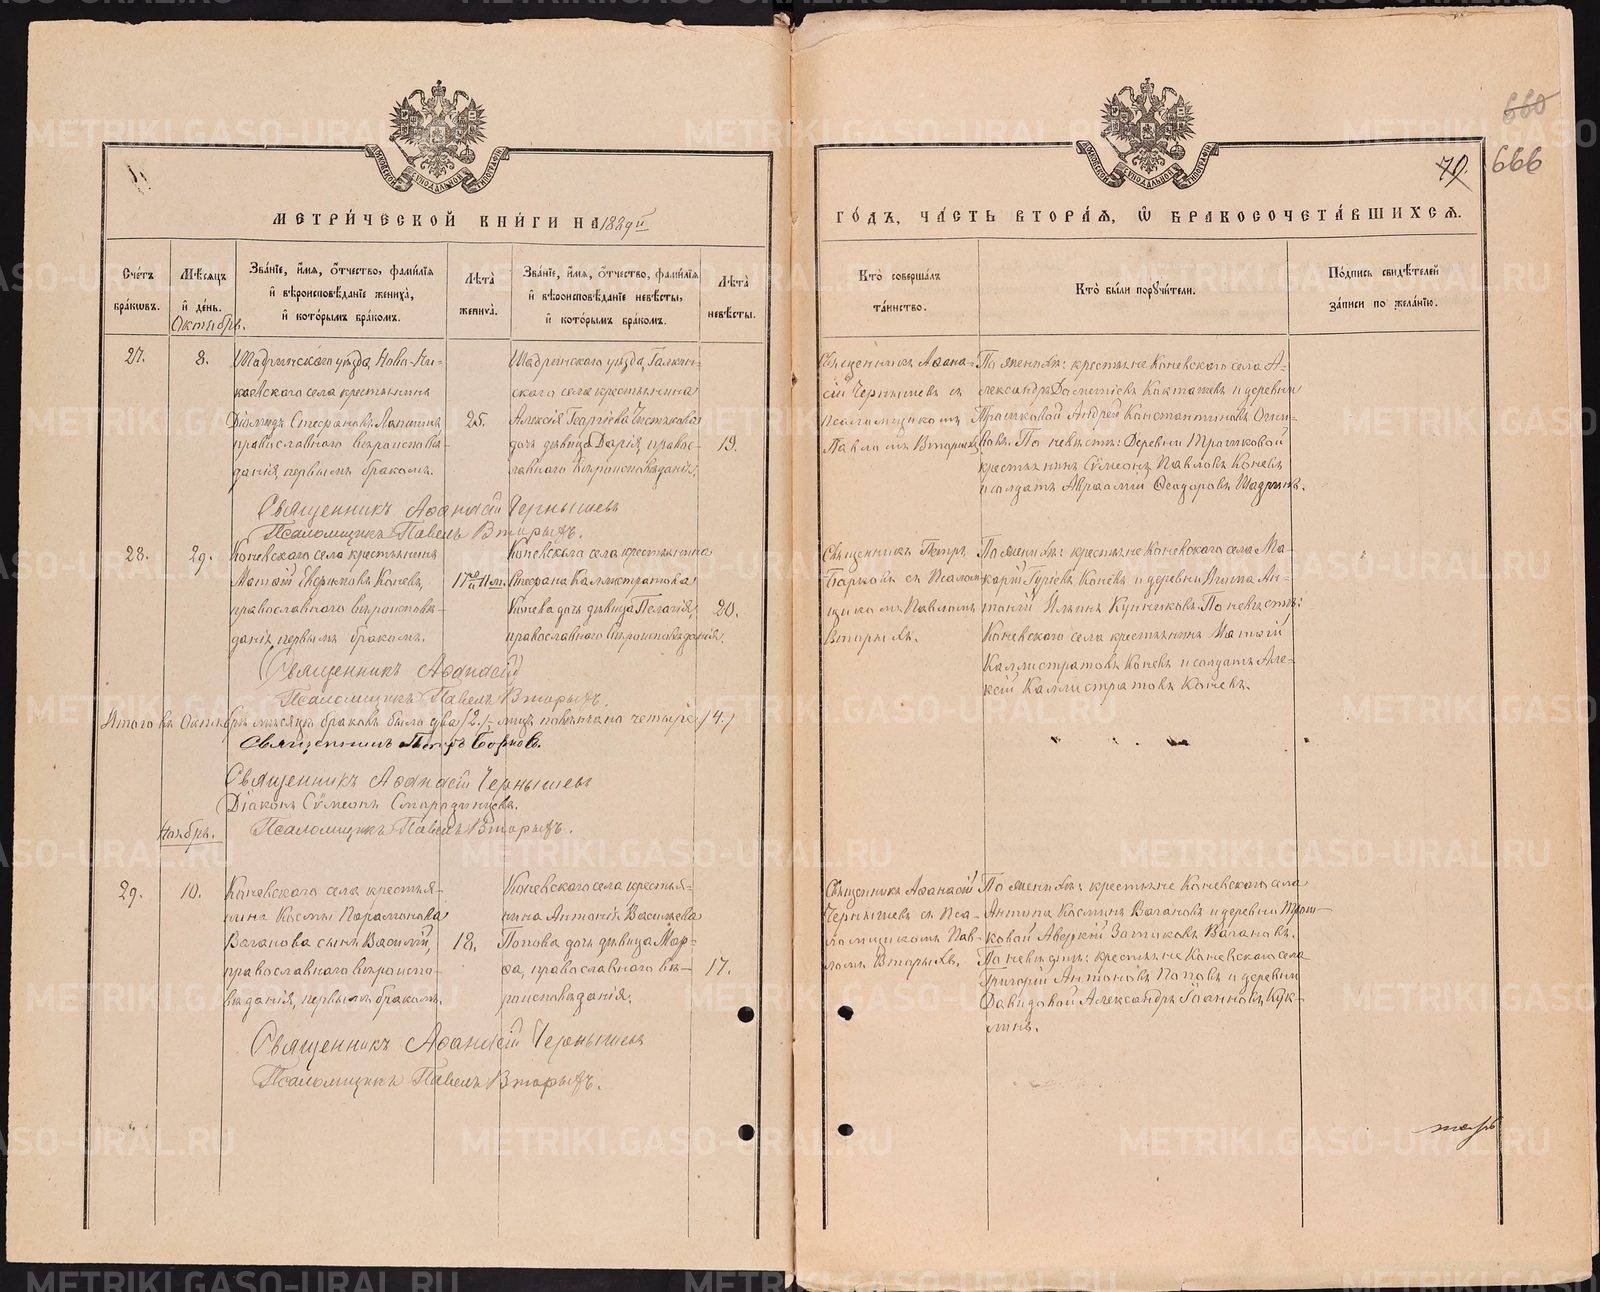 660
666
70.
МЕТРИ́ЧЕСКОЙ КНИ́ГИ НА 1889й
ГО́ДЪ, ЧА́СТЬ ВТОРА́Я, Ѡ҆ БРАКОСОЧЕТА́ВШИХСѦ.
Сче́тъ бра́кѡвъ.
Мѣ́сяцъ и҆ де́нь.
Зва́нїе, и҆́мя, ѻ҆́тчество, фами́лїя и҆ вѣроисповѣ́данїе жениха̀, и҆ кото́рымъ бра́комъ.
Лѣ́та жениха̀.
Зва́нїе, и҆́мя, ѻ҆́тчество, фами́лїя и҆ вѣроисповѣ́данїе невѣ́сты, и҆ кото́рымъ бра́комъ.
Лѣ́та невѣ́сты.
Кто̀ соверша́лъ та́инство.
Кто̀ бы́ли порꙋчи́тели.
По́дпись свидѣ́телей за́писи по жела́нїю.
Октябрь.
27.
8.
Шадринскаго уѣзда, Ново-Ни-
села крестьянинъ
Стефановъ
православнаго вѣроисповѣ-
данія, первымъ бракомъ.
25.
Шадринскаго уѣзда, Галкин-
скаго села крестьянина
Алексія Георгіева
дочь дѣвица Дарія, правос-
лавнаго вѣроисповѣданія.
19.
Священникъ Аѳана-
сій Чернышевъ съ
псаломщикомъ
Павломъ Вторыхъ
По женихѣ: крестьяне Коневскаго села А-
лександръ Дометіевъ и деревни
Трошковой Андрей Константиновъ
По невѣстѣ: Деревни Трошковой
крестьянинъ Сѵмеонъ Павловъ Коневъ
и солдатъ Авраамій Ѳеодоровъ Шадринъ.
Священникъ Аѳанасій Чернышевъ
Псаломщикъ Павелъ Вторыхъ.
28.
29.
Коневскаго села крестьянинъ
Матѳій Коневъ,
православнаго вѣроисповѣ-
данія первымъ бракомъ.
17 л. и 11 м.
Коневскаго села крестьянина
Стефана Каллистратова
Конева дочь дѣвица Пелагія,
православнаго вѣроисповѣданія.
20.
Священникъ Петръ
съ Псалом-
щикомъ Павломъ
Вторыхъ.
По женихѣ: крестьяне Коневскаго села Ма-
карій Гуріевъ Коневъ и деревни
Ильинъ По невѣстѣ:
Коневскаго села крестьянинъ Матѳій
Каллистратовъ Коневъ и солдатъ Але-
ксій Каллистратовъ Коневъ.
Священникъ Аѳанасій
Псаломщикъ Павелъ Вторыхъ.
Итого въ Октябрѣ мѣсяцѣ браковъ было два /2./ лицъ повѣнчано четыре /4./
Священникъ Петръ
Священникъ Аѳанасій Чернышевъ
Діаконъ Сѵмеонъ
Псаломщикъ Павелъ Вторыхъ.
Ноябрь.
29.
10.
Коневскаго села крестья-
нина Космы Парамонова
Ваганова сынъ Василій,
православнаго вѣроиспо-
вѣданія, первымъ бракомъ.
18.
Коневскаго села крестья-
нина Антонія Васильева
Попова дочь дѣвица Мар-
ѳа, православнаго вѣ-
роисповѣданія.
17.
Священникъ Аѳанасій
Чернышевъ съ Пса-
ломщикомъ Пав-
ломъ Вторыхъ.
По женихѣ: крестьяне Коневскаго села
Антипа Косминъ Вагановъ и деревни Трош-
ковой Аверкій Вагановъ.
По невѣстѣ: крестьяне Коневскаго села
Григорій Антоновъ Поповъ и деревни
Давидовой Александръ Іоанновъ Кук-
линъ.
Священникъ Аѳанасій Чернышевъ
Псаломщикъ Павелъ Вторыхъ.
METRIKI.GASO-URAL.RU